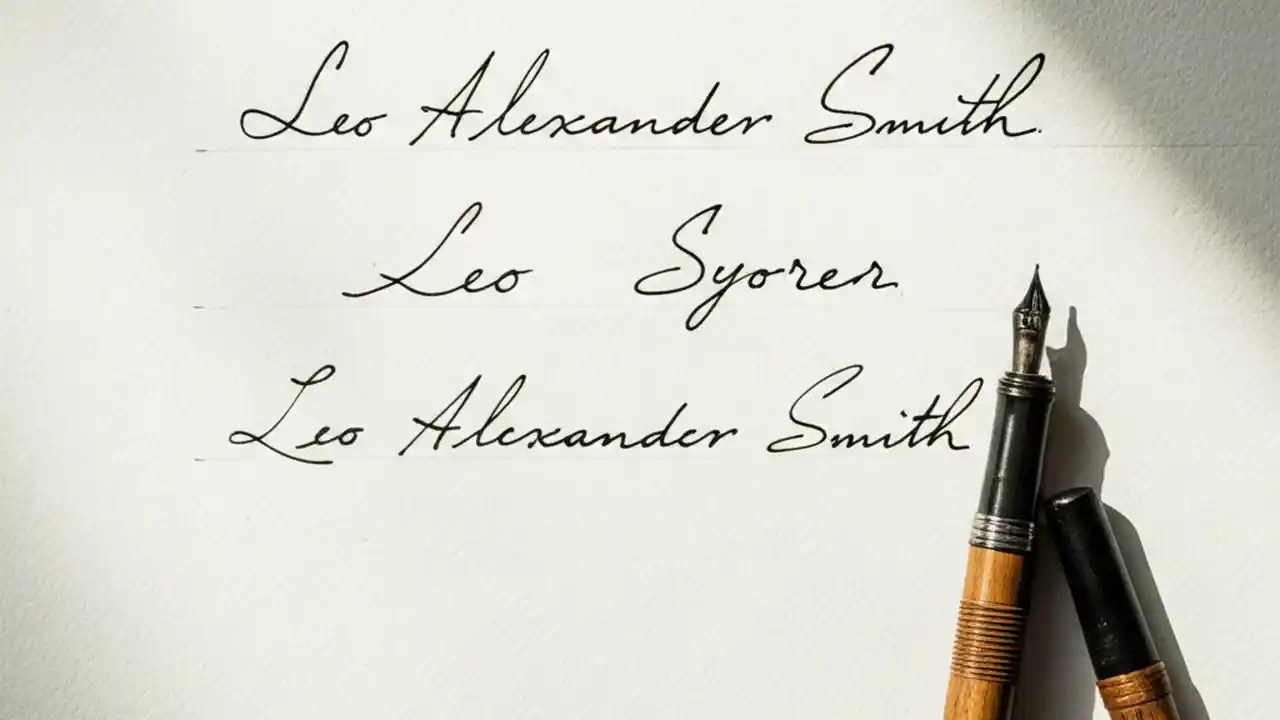 Leo Alexander Smith.
Leo Syorer
Leo Alexander Smith